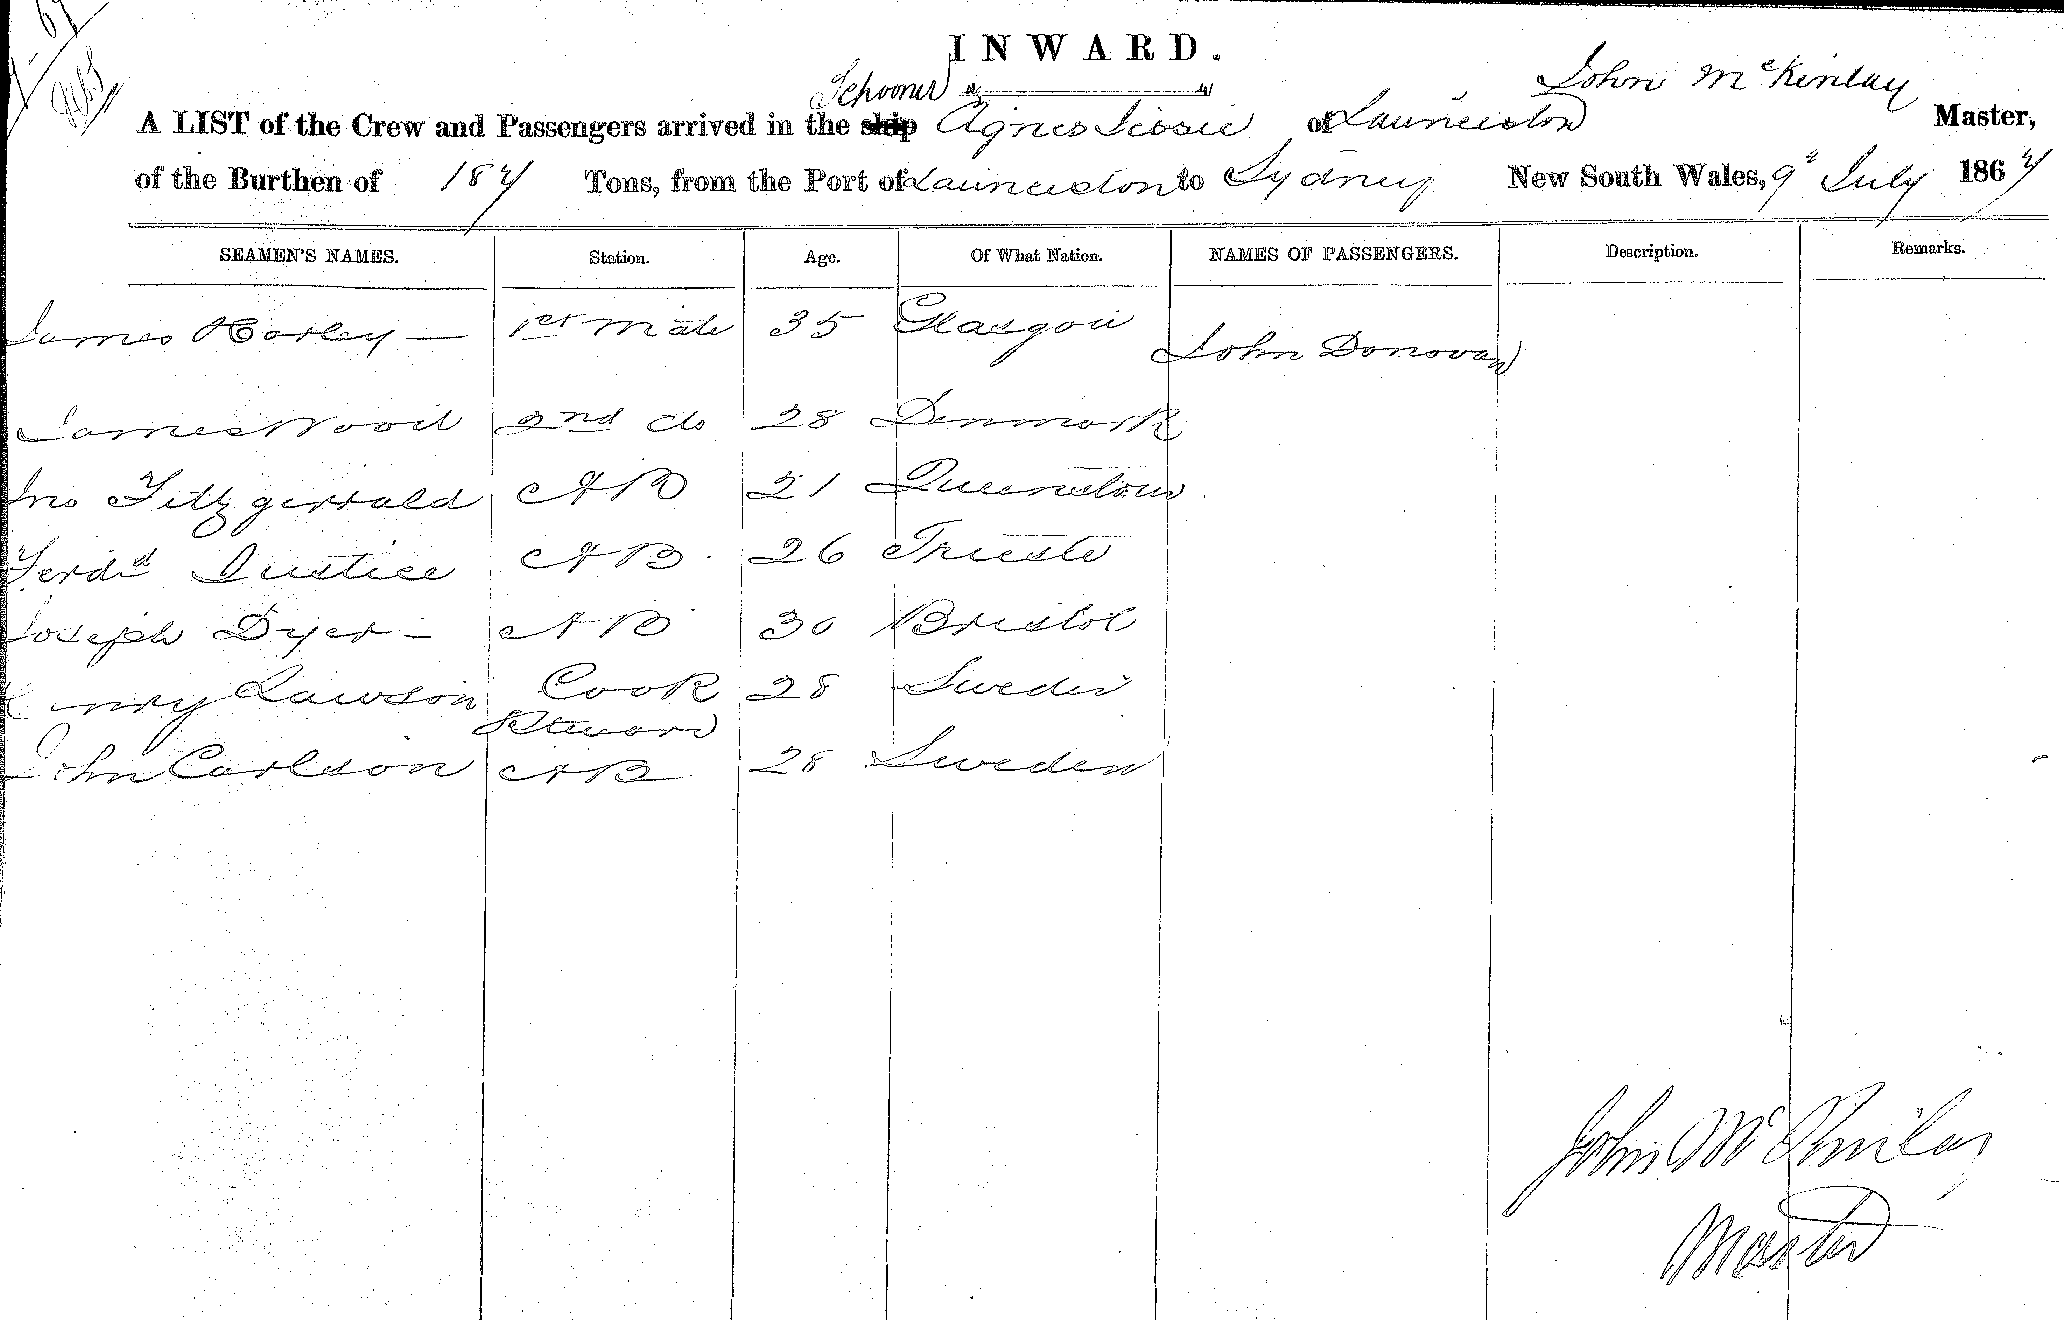 INWARD.
Schooner John McKinlay
A LIST of the Crew and Passengers arrived in the ship Agnes Jessie of Launceston Master,
of the Burthen of 187 Tons, from the Port of Launceston to Sydney New South Wales, 9th July 1867
SEAMEN'S NAMES. Station. Age. Of What Nation. NAMES OF PASSENGERS. Description. Remarks.
James 1st Mate 35 Glasgow John Donovan
James Wood 2nd do 28 Denmark
Jno Fitzgerrald AB 21 Queenstown
Ferdd Justice AB 26 Trieste
Joseph Dyer AB 30 Bristol
Henry Lawson Cook 28 Sweden
Steward
John Carlson AB 28 Sweden
John McKinlay
Master